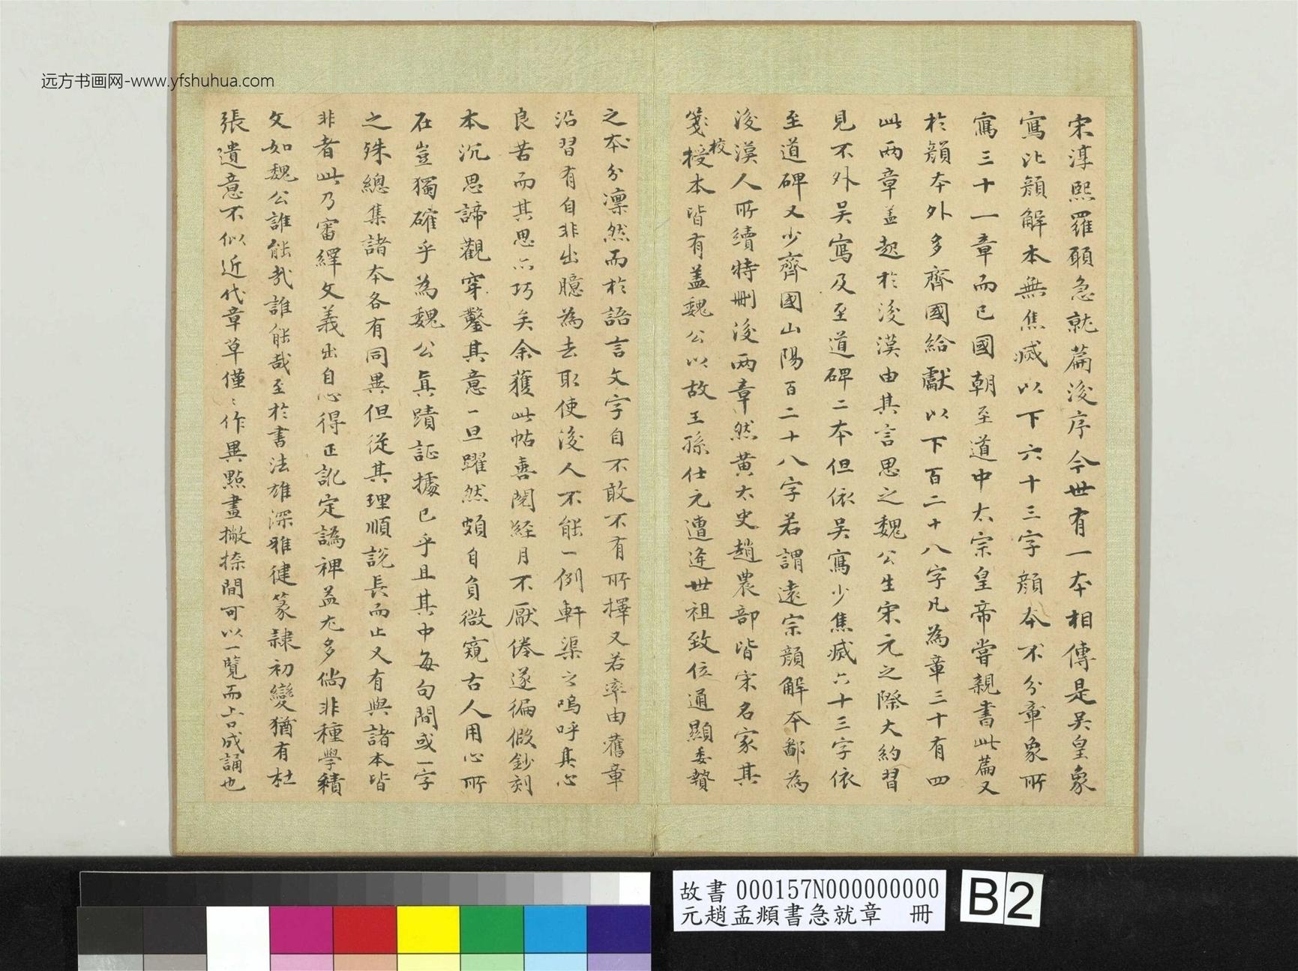 远方书画网-www.yfshuhua.com
宋淳熙羅願急就篇後序今世有一本相傳是吴皇象
寫比顔解本無焦滅以下六十三字顔本不分章象所
寫三十一章而已國朝至道中太宗皇帝嘗親書此篇又
於顔本外多齊國給獻以下百二十八字凡為章三十有四
此兩章盖起於後漢由其言思之魏公生宋元之際大約習
見不外吴寫及至道碑二本但依吴寫少焦滅六十三字依
至道碑又少齊國山陽百二十八字若謂遠宗顔解本鄙為
後漢人所續特刪後兩章然黄太史趙農部皆宋名家其
箋授本皆有盖魏公以故王孫仕元遭逢世祖致位通顯委贄
校
之本分凛然而於語言文字自不敢不有所擇又若率由舊章
沿習有自非出臆為去取使後人不能一例軒渠之嗚呼其心
良苦而其思亦巧矣余獲此帖喜閱經月不厭倦遂徧假鈔刻
本沉思諦觀穿鑿其意一旦躍然頗自負微窺古人用心所
在豈獨確乎為魏公真蹟証據已乎且其中每句間或一字
之殊總集諸本各有同異但從其理順説長而止又有與諸本皆
非者此乃審繹文義出自心得正訛定譌裨益尤多倘非種學績
文如魏公誰能哉誰能哉至於書法雄深雅健篆隷初變猶有杜
張遺意不似近代章草僅〻作異點畫撇捺間可以一覽而上口成誦也
故書 000157N000000000
元趙孟頫書急就章 冊
B2